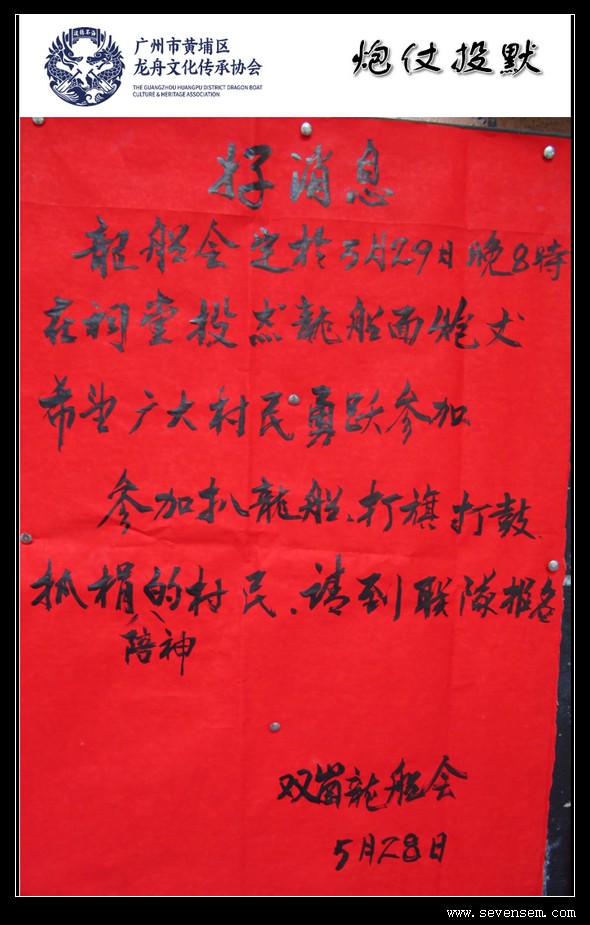 广州市黄埔区
龙舟文化传承协会
THE GUANGZHOU HUANGPU DISTRICT DRAGON BOAT
CULTURE & HERITAGE ASSOCIATION
炮仗投默
好消息
龍船会定於5月29日晚8時
在祠堂投龍船面炮丈
希望广大村民勇跃参加
参加扒龍船、打旗打鼓
抓梢的村民、请到联隊报名
陪神
双岗龍船会
5月28日
www.sevensem.com